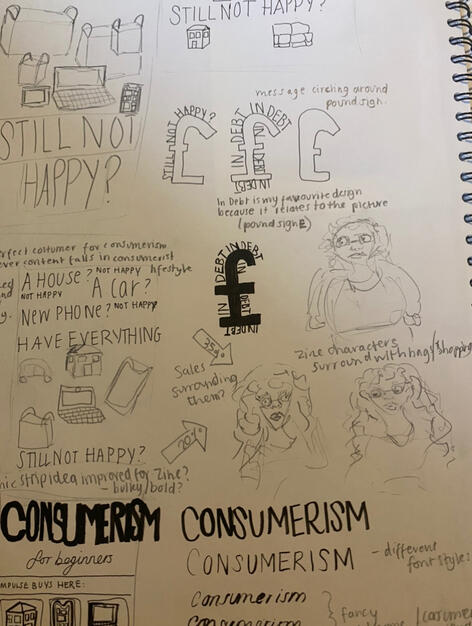 STILL NOT HAPPY?
STILL NOT
HAPPY?
message circling around
pound sign.
STILL NOT HAPPY?
IN DEBT IN DEBT
IN DEBT
IN DEBT
In Debt is my favourite design
because it relates to the picture
(pound sign£)
perfect costumer for consumerism
never content falls in consumerist
lifestyle
A HOUSE? NOT HAPPY
NOT HAPPY
A car?
NEW PHONE? NOT HAPPY
HAVE EVERYTHING
STILL NOT HAPPY?
IN DEBT IN DEBT
IN DEBT
IN DEBT
35%
Sales
surrounding
them?
20%
zine characters
surround with bags/shopping
strip idea improved for zine?
- bulky/bold?
CONSUMERISM
for beginners
IMPULSE BUYS HERE:
CONSUMERISM
CONSUMERISM
- different
font styles
Consumerism
Consumerism
fancy